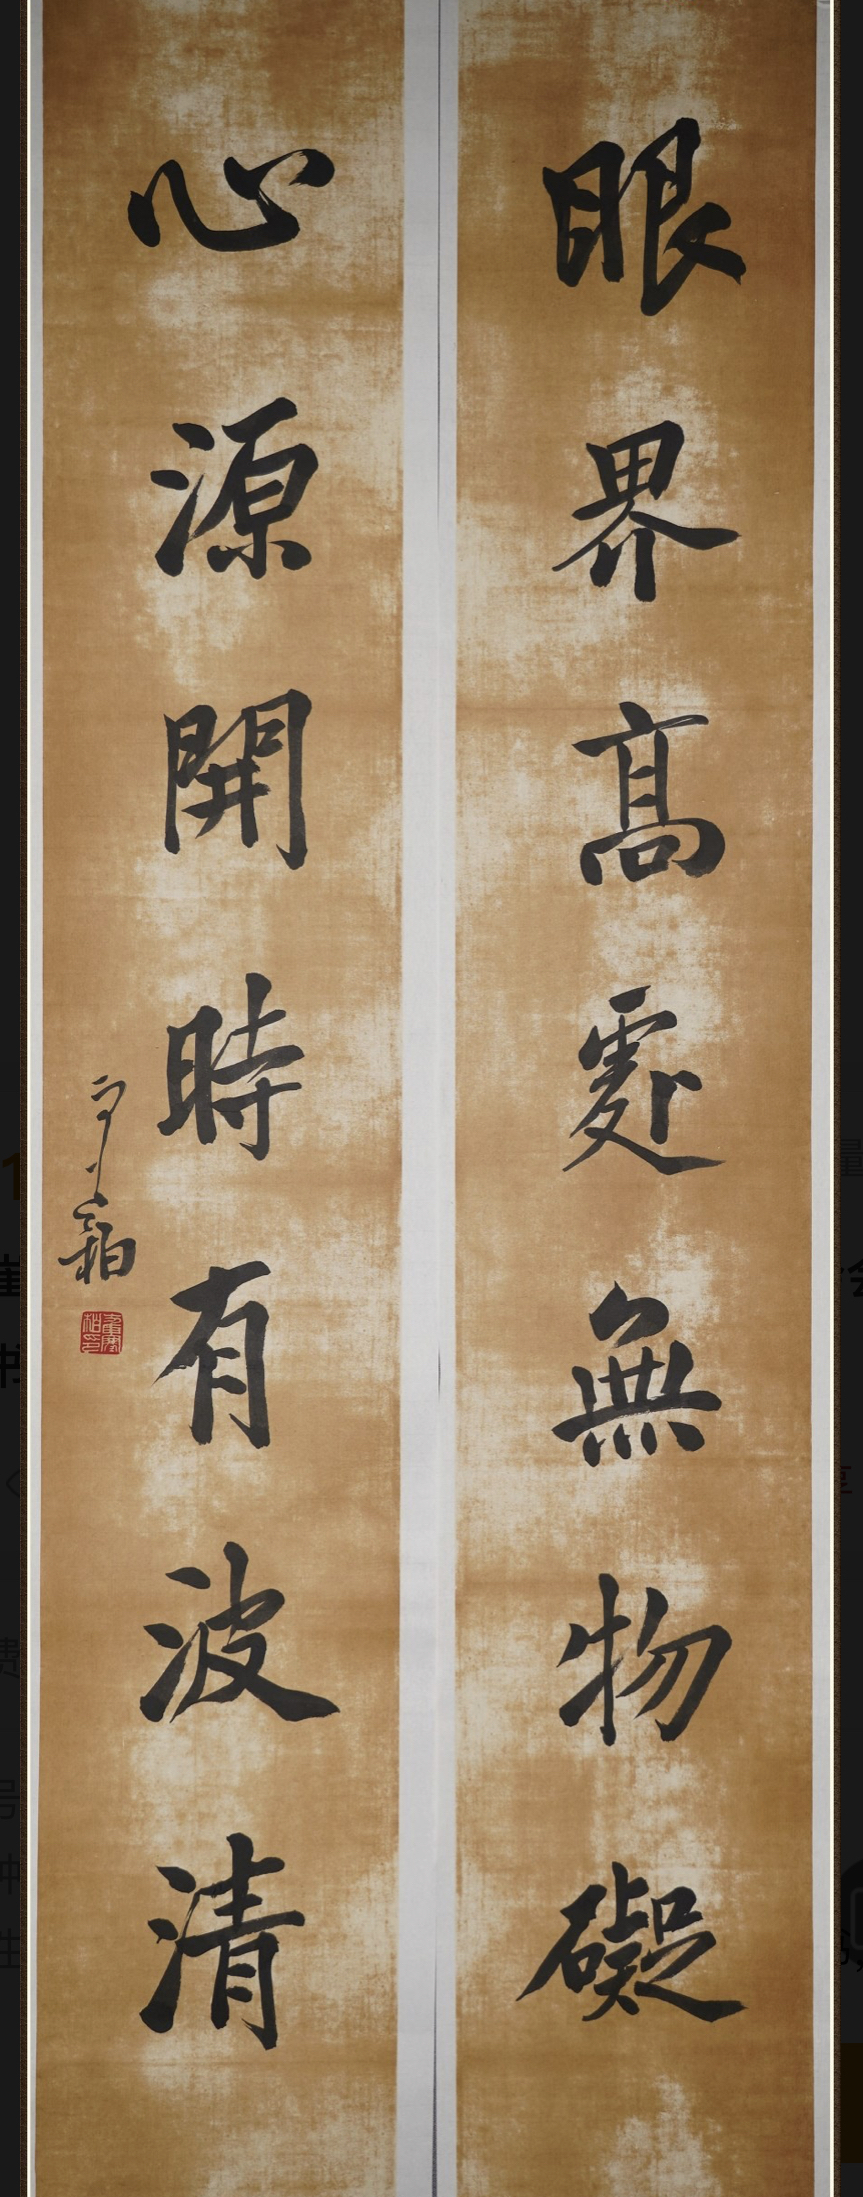 眼界高處無物礙
心源開時有波清